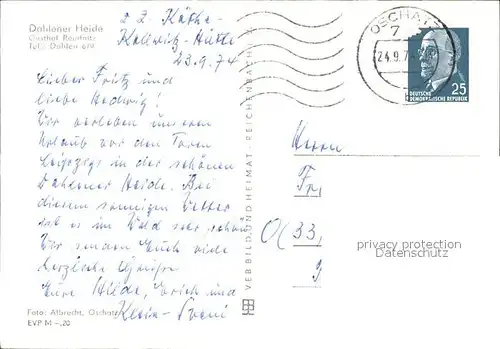 Dahlener Heide
Gasthof Reudnitz
Tel.: Dahlen 694
z Z Käthe-
Kollwitz-Hütte
23.9.74
Lieber Fritz und
liebe Hedwig!
Wir verleben unseren
Urlaub vor den Toren
Leipzigs in der schönen
Dahlener Heide. Bei
diesem sonnigen Wetter
ist es im Wald sehr schön.
Wir senden Euch viele
herzliche Grüße
Eure Hilde, Erich und
Klein-
Foto: Albrecht, Oschatz
EVP M -,20
VEB BILD UND HEIMAT · REICHENBACH
OSCHATZ
7
24.9.7
DEUTSCHE
DEMOKRATISCHE REPUBLIK
25
Herrn
Fri
33
9
privacy protection
Datenschutz